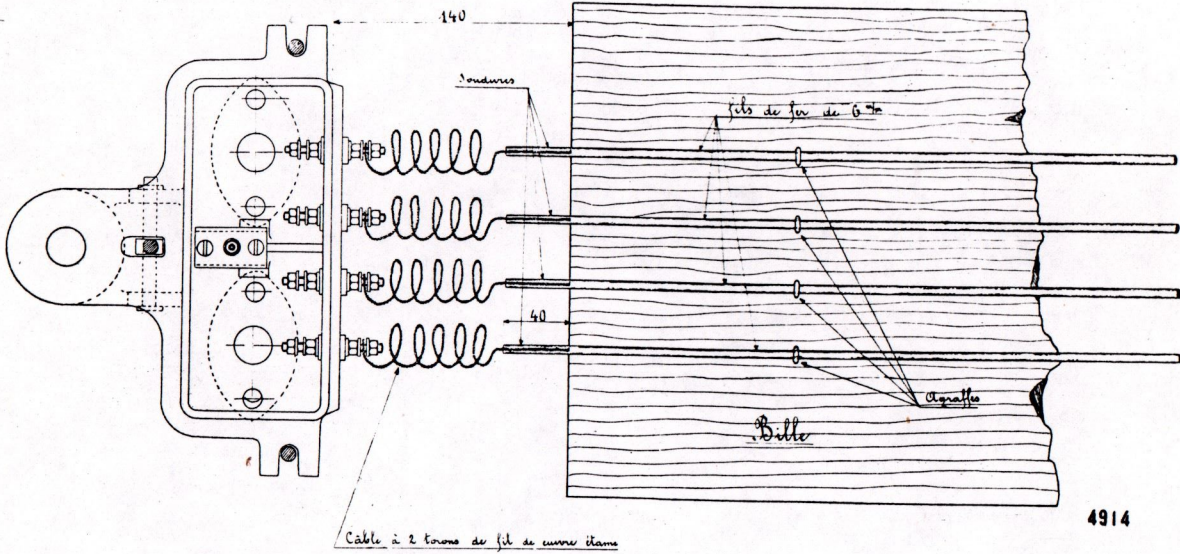 140
Soudures
fils de fer de 6 m/m
40
Agraffes
Bille
4914
Câble à 2 torons de fil de cuivre étamé